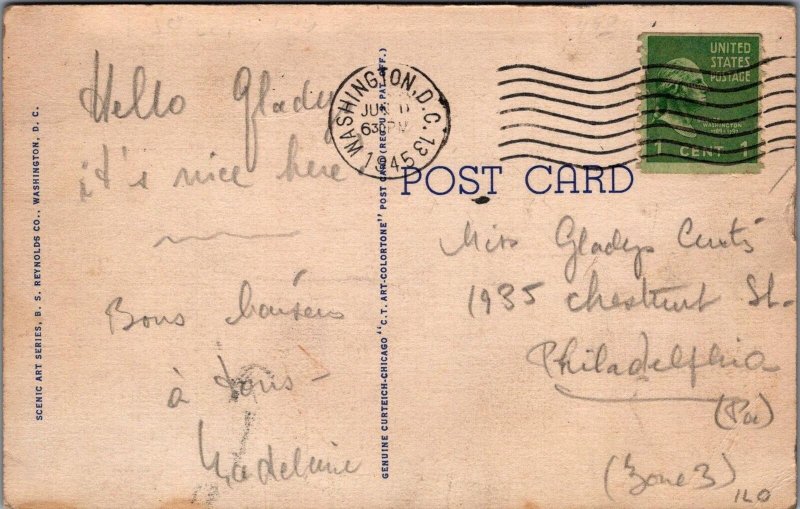 SCENIC ART SERIES, B. S. REYNOLDS CO., WASHINGTON, D. C.
Hello Gladys
it's nice here
Bons baisers
à tous -
Madeleine
GENUINE CURTEICH-CHICAGO "C.T. ART-COLORTONE" POST CARD (REG. U.S. PAT. OFF.)
WASHINGTON, D.C. 13
JUN
630PM
1945
UNITED
STATES
POSTAGE
WASHINGTON
1 CENT 1
POST CARD
Miss Gladys Curtis
1935 Chestnut St.
Philadelphia
(Pa)
(Zone 3)
ILO